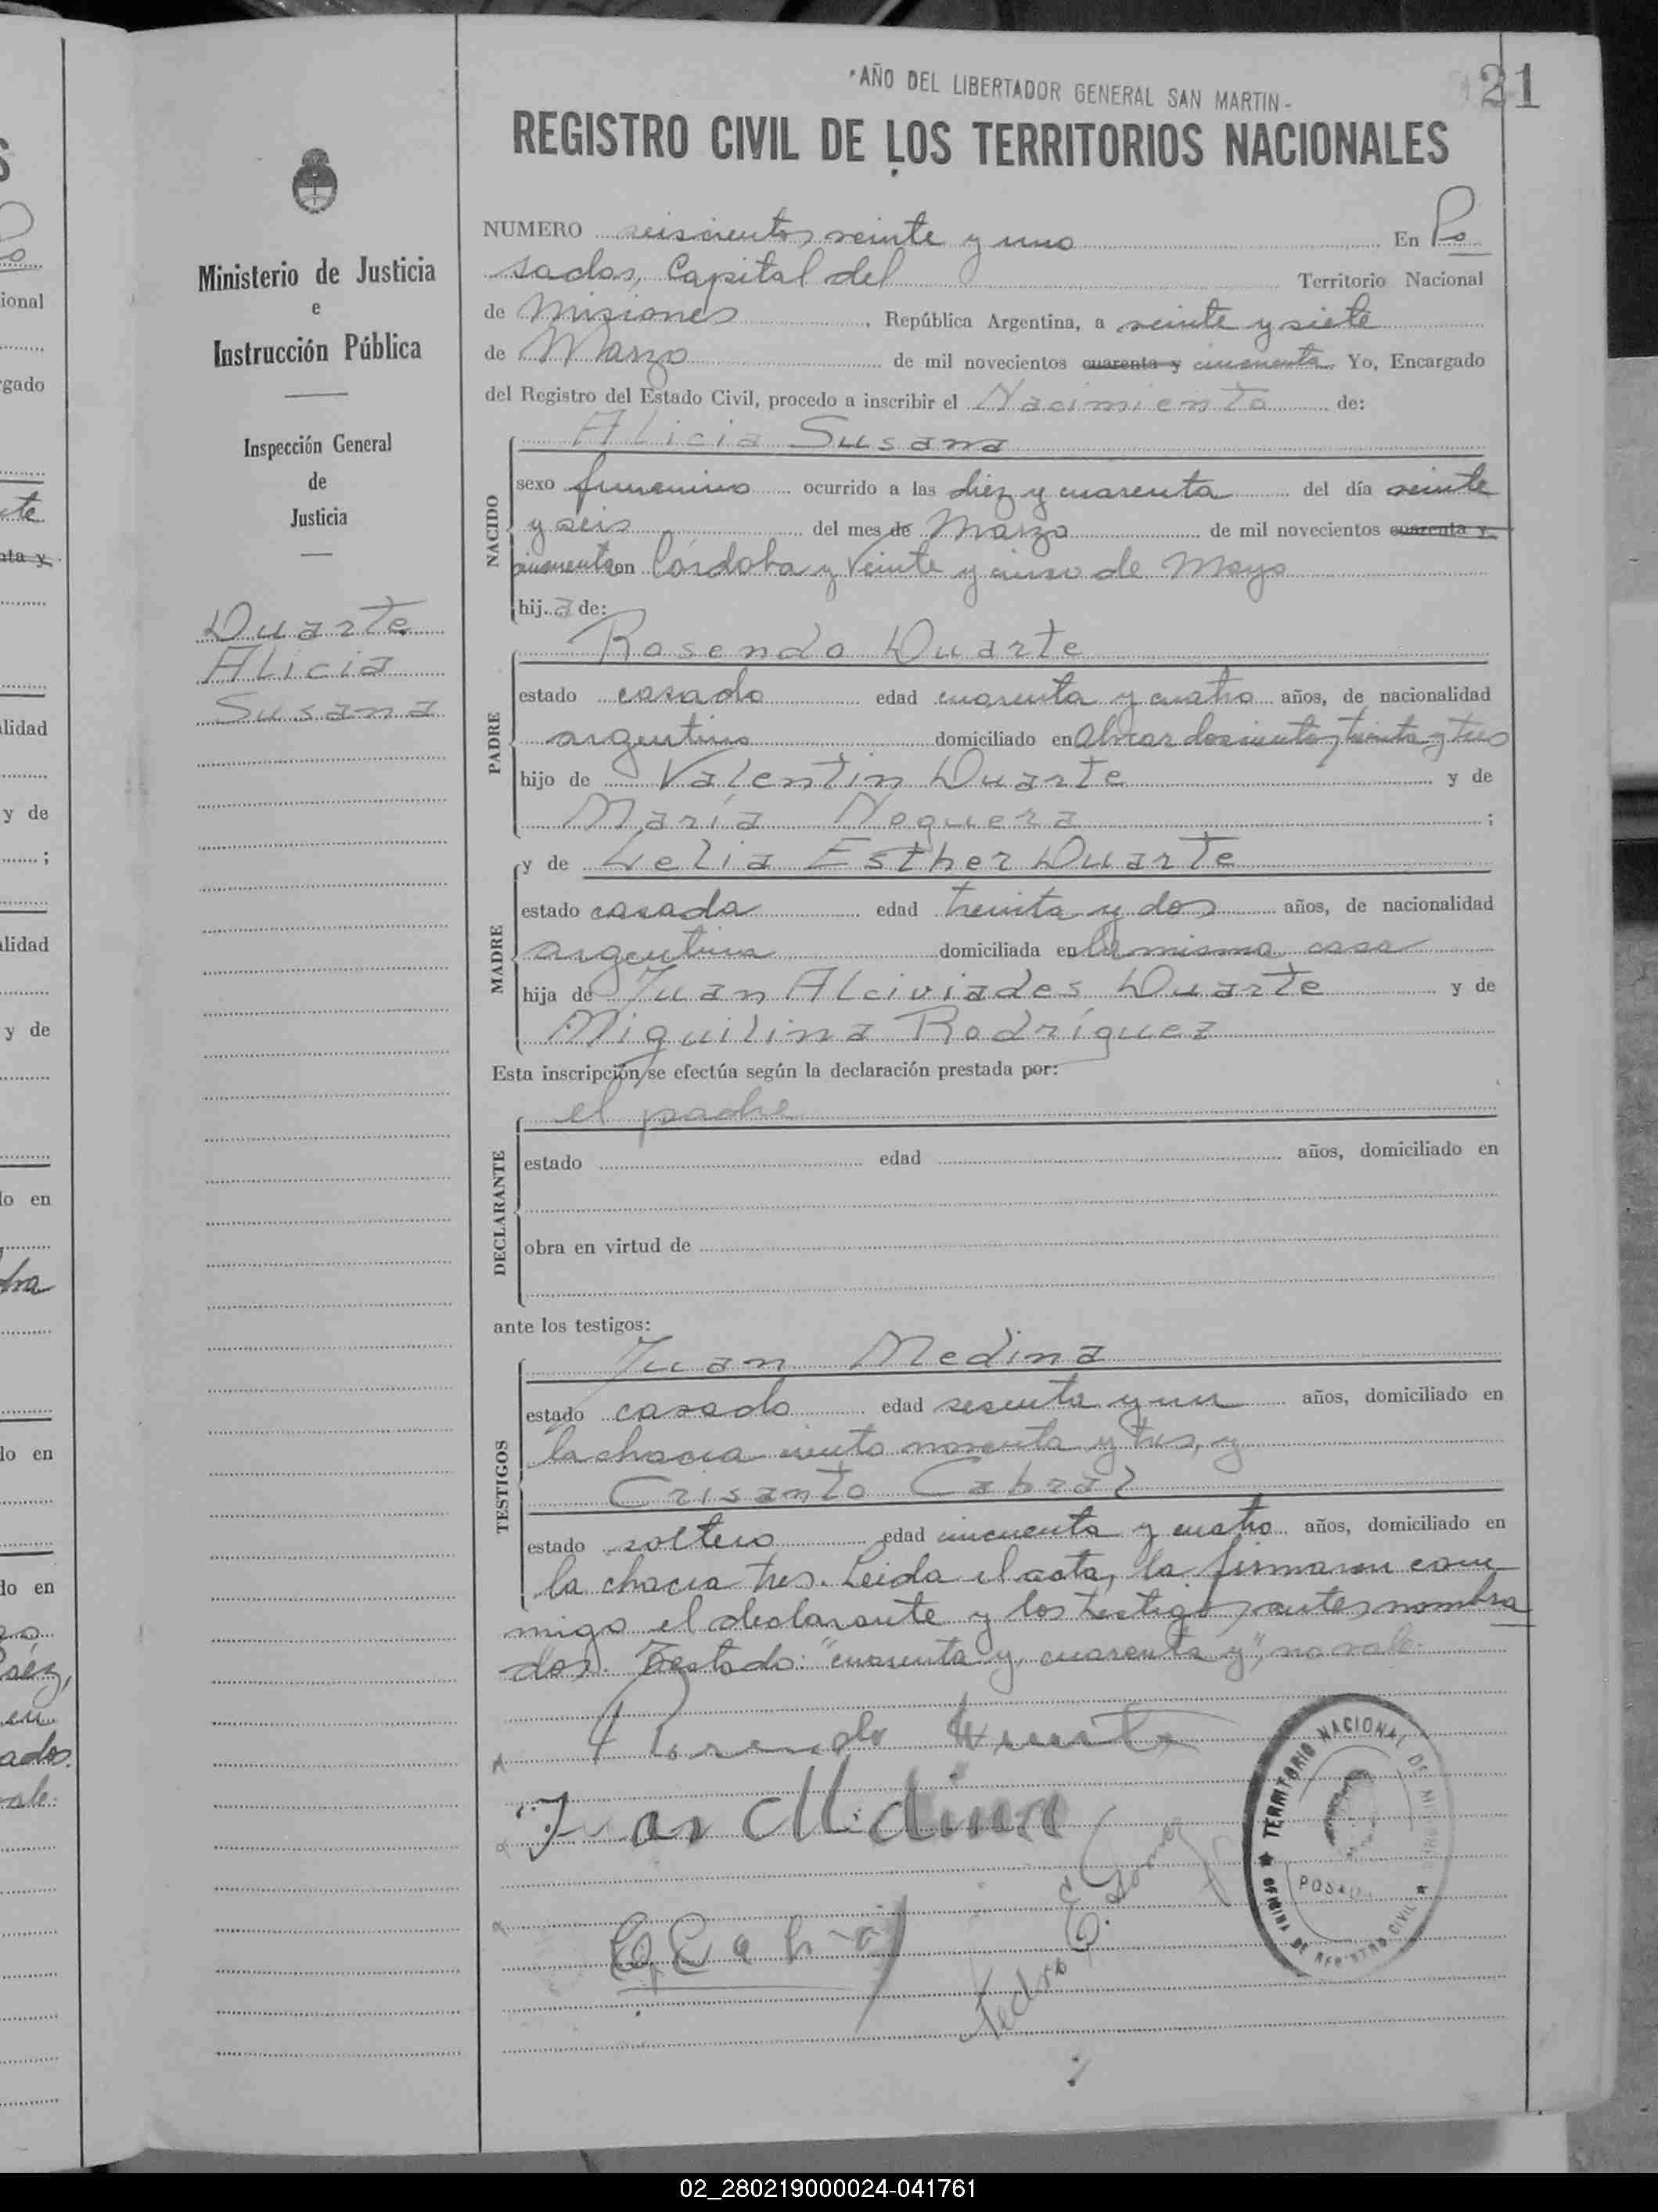 "AÑO DEL LIBERTADOR GENERAL SAN MARTIN-
21
REGISTRO CIVIL DE LOS TERRITORIOS NACIONALES
Ministerio de Justicia
e
Instrucción Pública
Inspección General
de
Justicia
Duarte
Alicia
Susana
NUMERO seiscientos veinte y uno En Po
sadas, Capital del Territorio Nacional
de Misiones, República Argentina, a veinte y siete
de Marzo de mil novecientos cuarenta y cincuenta Yo, Encargado
del Registro del Estado Civil, procedo a inscribir el Nacimiento de:
NACIDO
Alicia Susana
sexo femenino ocurrido a las diez y cuarenta del día veinte
y seis del mes de Marzo de mil novecientos cuarenta y
cincuenta en Córdoba y Veinte y cinco de Mayo
hija de:
PADRE
Rosendo Duarte
estado casado edad cuarenta y cuatro años, de nacionalidad
argentino domiciliado en Alvear doscientos treinta y tres
hijo de Valentin Duarte y de
María Noguera ;
MADRE
y de Lelia Esther Duarte
estado casada edad treinta y dos años, de nacionalidad
argentina domiciliada en la misma casa
hija de Juan Alciviades Duarte y de
Miguilina Rodríguez
Esta inscripción se efectúa según la declaración prestada por:
DECLARANTE
el padre
estado edad años, domiciliado en
obra en virtud de
ante los testigos:
TESTIGOS
Juan Medina
estado casado edad sesenta y un años, domiciliado en
la chacra ciento noventa y tres, y
Crisanto Cabral
estado soltero edad cincuenta y cuatro años, domiciliado en
la chacra tres. Leida el acta, la firmaron con
migo el declarante y los testigos antes nombra
dos. Testado: "cuarenta y, cuarenta y", no vale.
Rosendo Duarte
Juan Medina
C. Cabral
Pedro E. Gomez
TERRITORIO NACIONAL DE MISIONES
POSADAS
OFICINA DE REGISTRO CIVIL
02_280219000024-041761